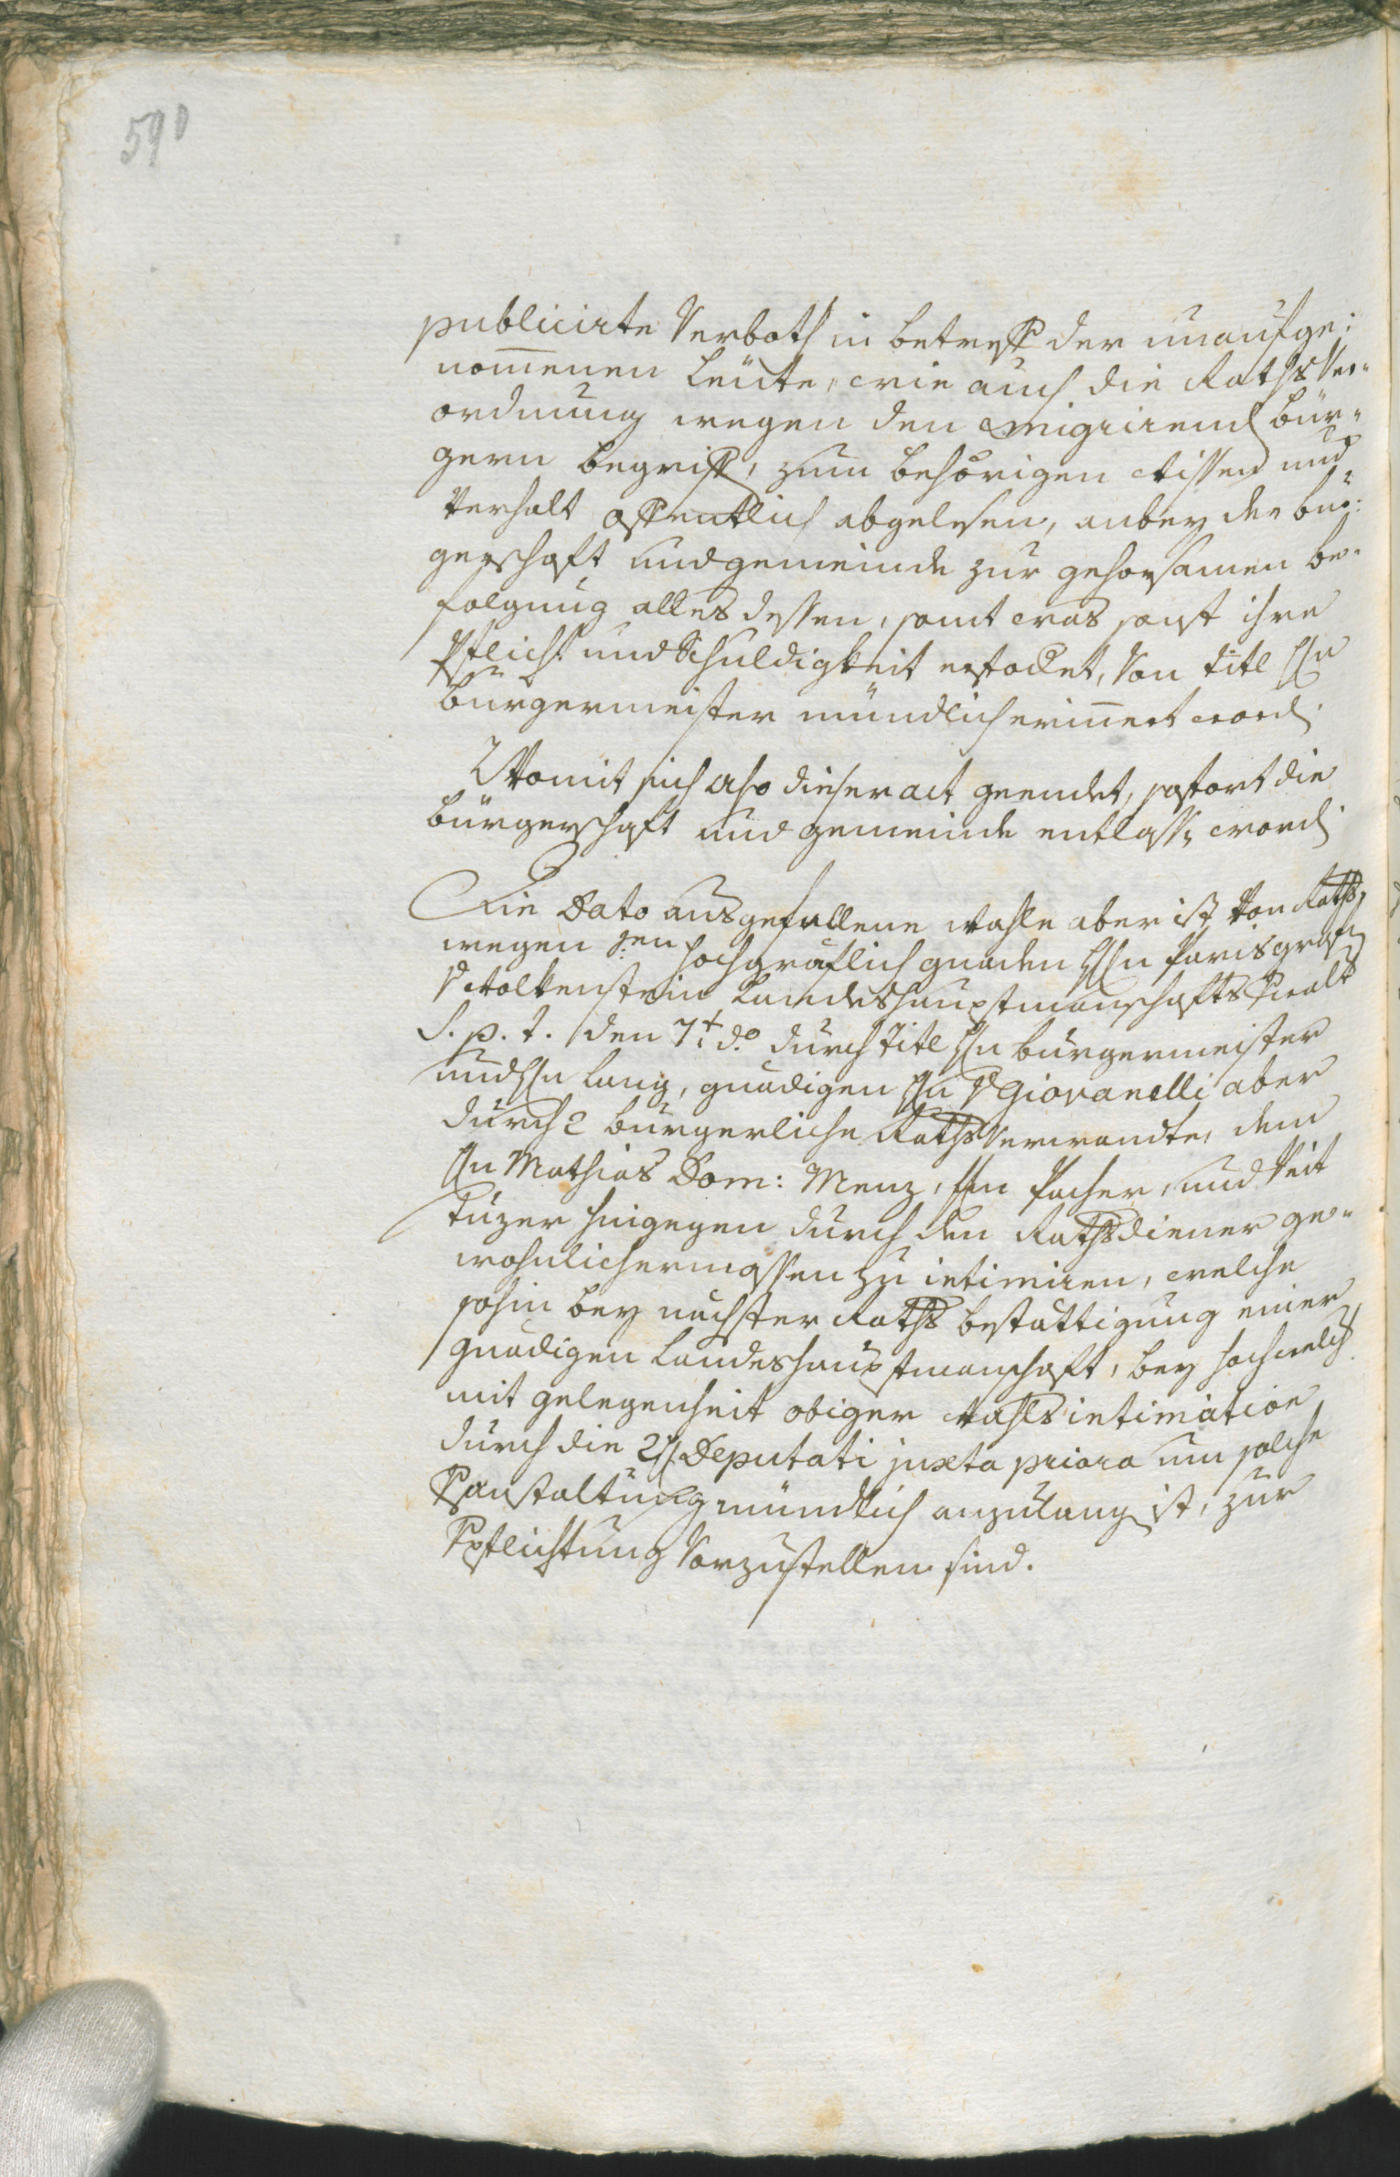 590
publicirte Verboth in betreff der unaufge:
nom̄enen Leüte, wie auch die Raths Ver-
ordnung wegen den emigrirend bür-
gern begriff, zum behörigen wissen und
Verhalt offentlich abgelesen, anbey die bur-
gerschaft und gemeinde zur gehorsamen be-
folgung alles dessen, samt was sonst ihre
Pflicht und Schuldigkeit erfodert, Von titl Hn
Bürgermeister mündlich erin̄ert word.
Womit sich also dieser act geendet, sofort die
bürgerschaft und gemeinde entlassn word
Die Dato ausgefallene wahle aber ist Von Raths
wegen hochgräflich gnaden Hn Paris grafn
V Wolkenstein Landeshauptmanschafts
S. p. t. den 7t do durch titl Hn burgermeister
und Hn Lang, gnädigen Hn V Giovanelli aber
durch 2 bürgerliche Raths Verwandte, dem
Hn Mathias Dom: Menz, Hn Pacher, und Veit
hingegen durch den Rathsdiener ge-
wohnlichermassen zu intimiren, welche
sohin bey nächster Raths bestättigung einer
gnädigen Landeshauptmanschaft, bey hochwelch
mit gelegenheit obiger wahls intimation
durch die 2 H. Deputati juxta priora um solche
Vanstaltung mündlich anzulang ist, zur
Vpflichtung Vorzustellen sind.